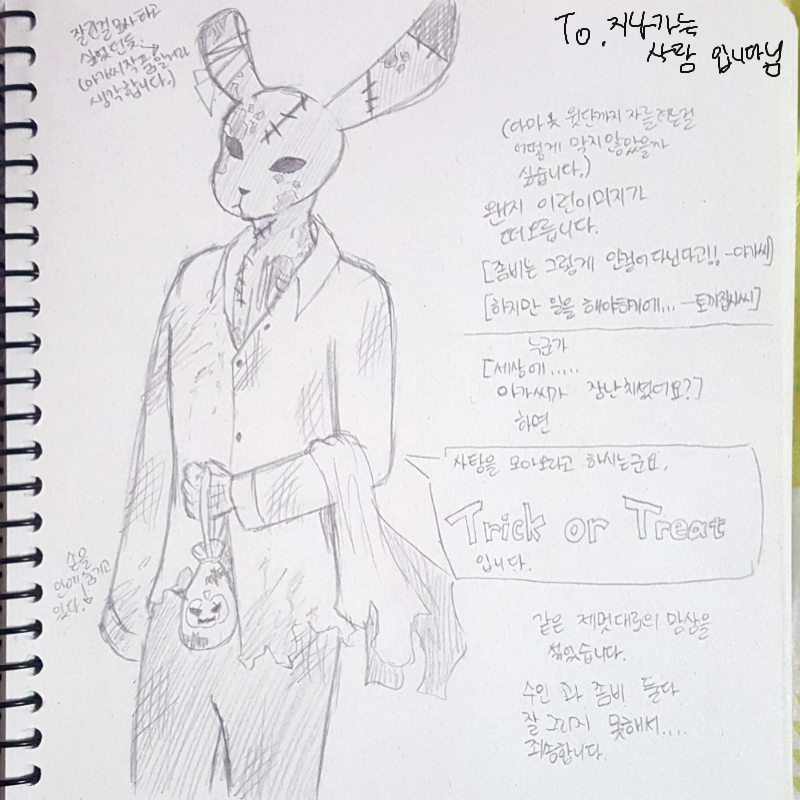 To. 지나가는
사람 입니마님
잘린걸 묘사하고
싶었던듯.
(아가씨 작품일거라
생각합니다.)
(아마 옷 원단까지 자를려는걸
어떻게 막지 않았을까
싶습니다.)
왠지 이런이미지가
떠오릅니다.
[좀비는 그렇게 안걸어다닌다고!! -아가씨]
[하지만 일을 해야하기에... -토끼집사씨]
누군가
[세상에.....
아가씨가 장난치셨어요?]
하면
사탕을 모아오라고 하시는군요.
Trick or Treat
입니다.
손을
안에 숨기고
있다.
같은 제멋대로의 망상을
섞었습니다.
수인 과 좀비 둘다
잘 그리지 못해서....
죄송합니다.